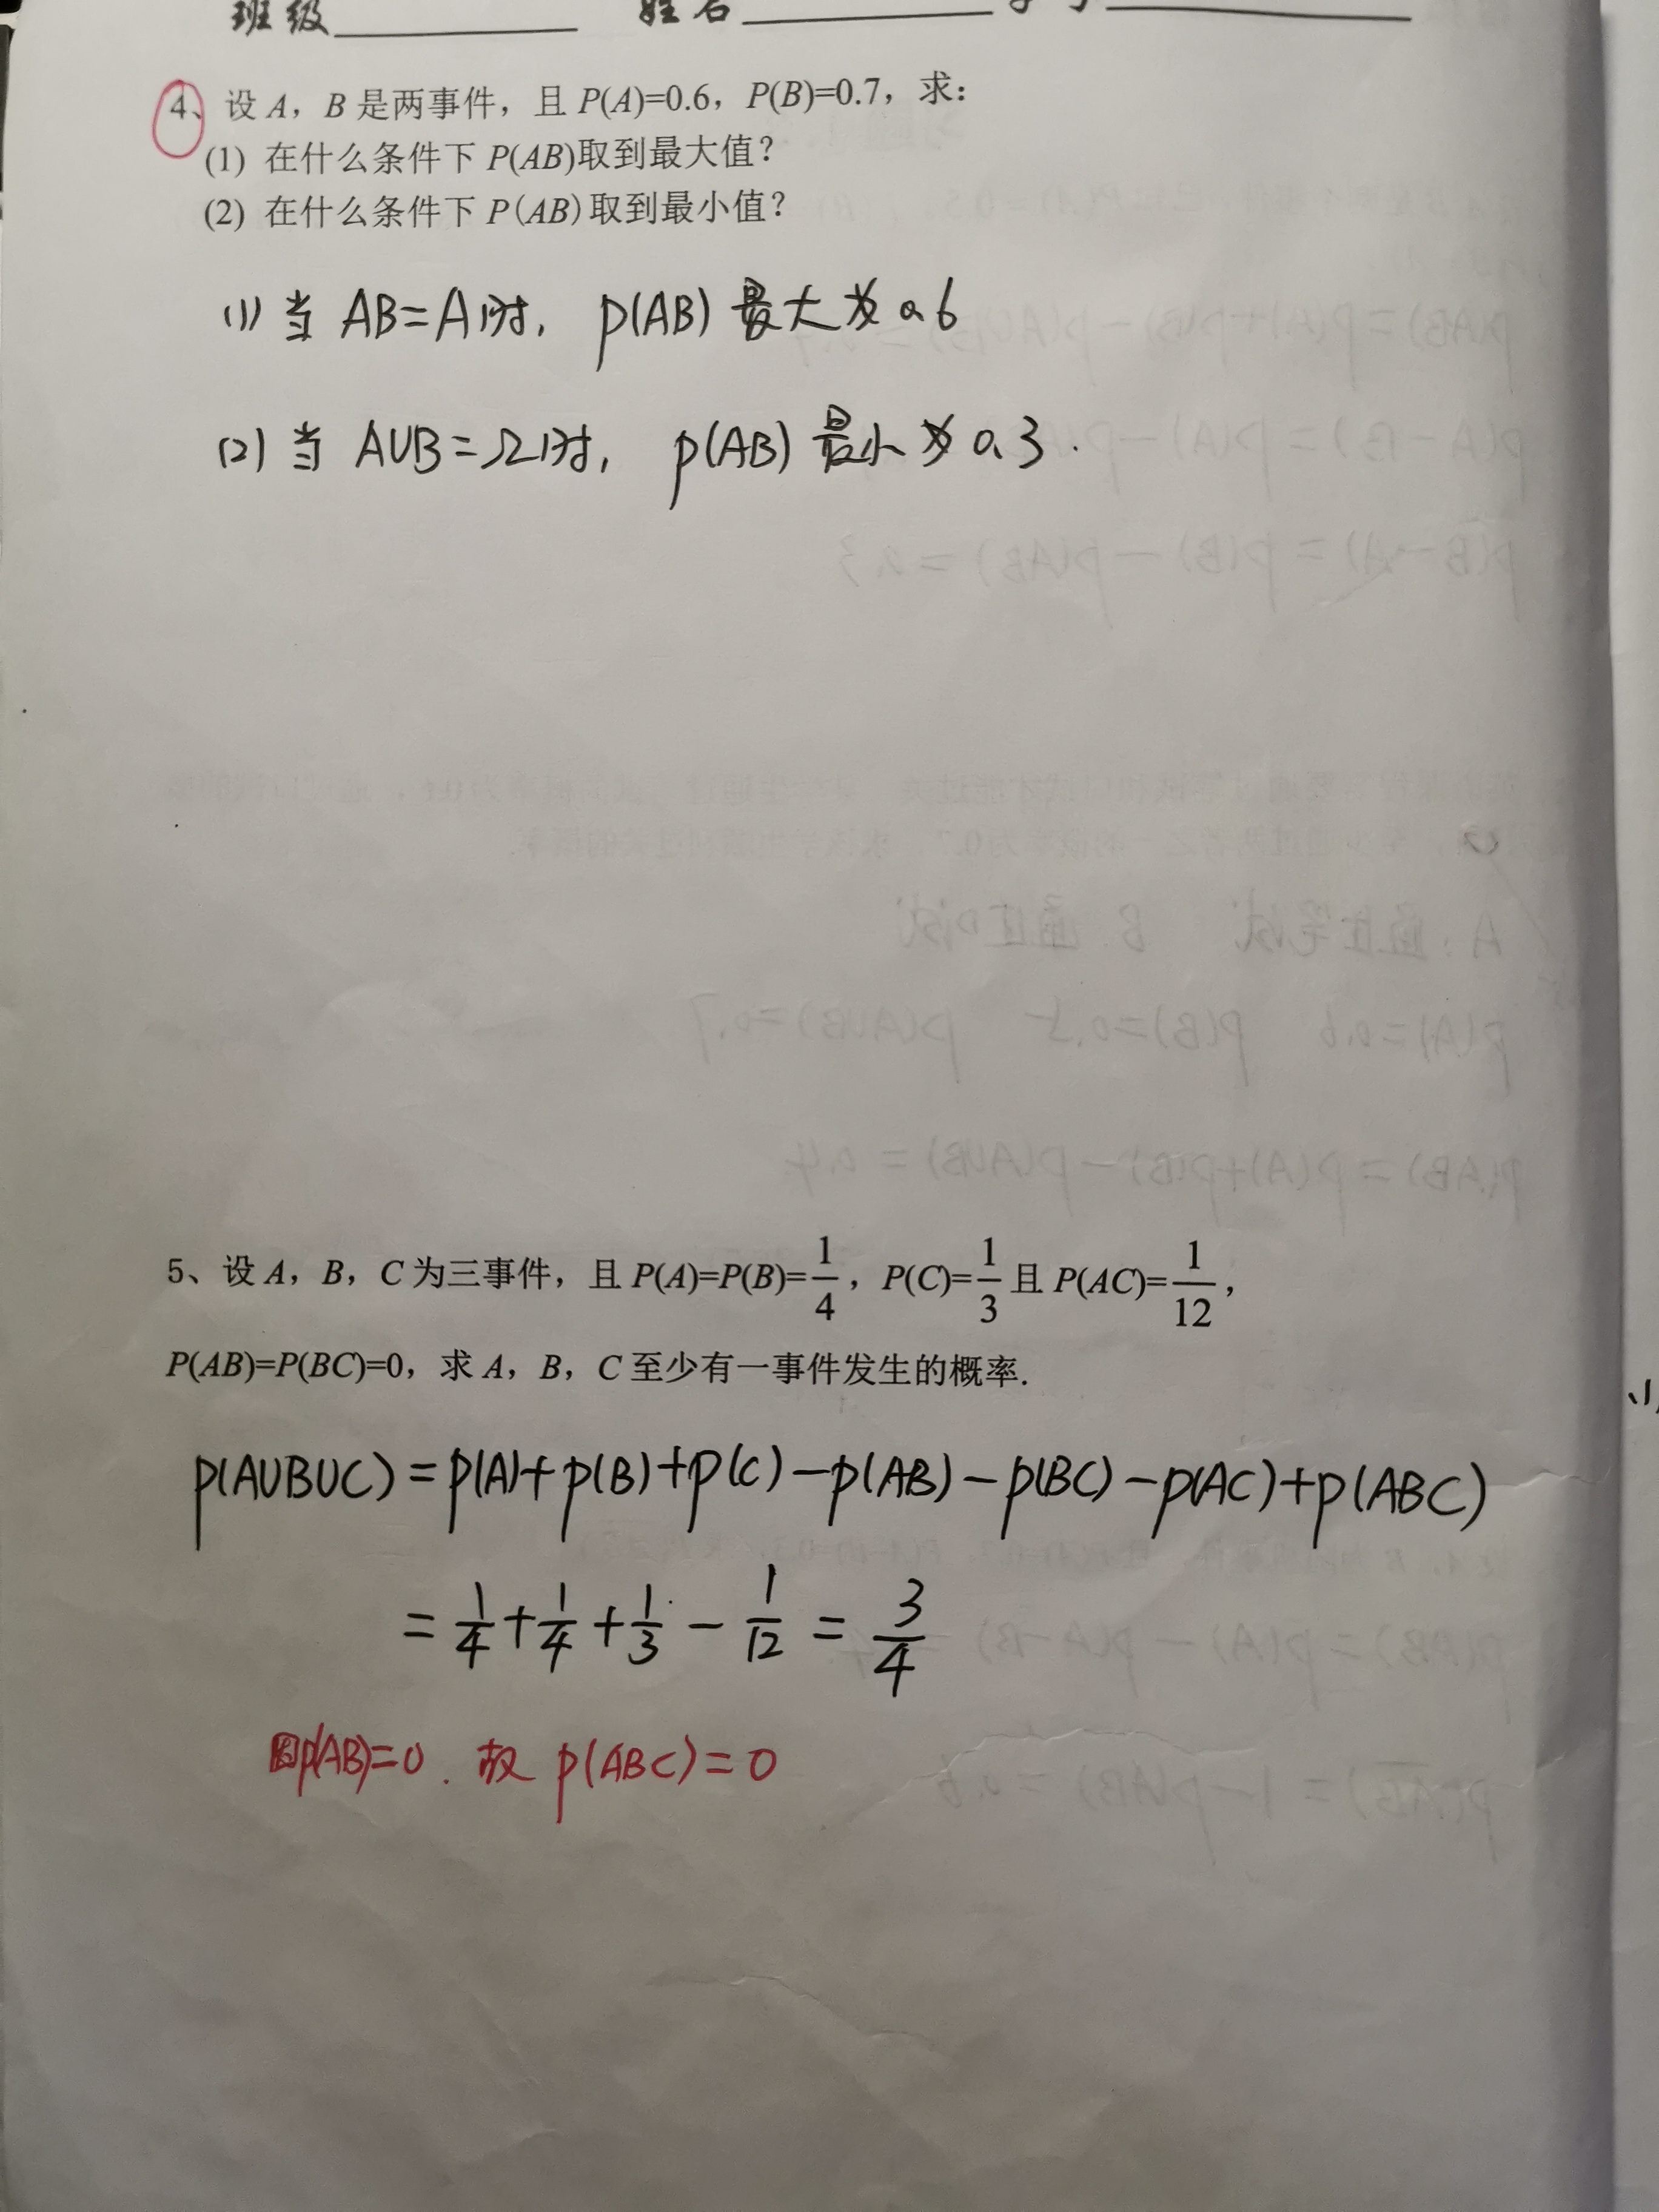 班级 姓名
4、设 A，B 是两事件，且 P(A)=0.6，P(B)=0.7，求：
(1) 在什么条件下 P(AB)取到最大值？
(2) 在什么条件下 P(AB)取到最小值？
(1) 当 AB=A时, p(AB) 最大为 0.6
(2) 当 AUB=Ω时, p(AB) 最小为 0.3.
5、设 A，B，C 为三事件，且 P(A)=P(B)=1/4，P(C)=1/3 且 P(AC)=1/12，
P(AB)=P(BC)=0，求 A，B，C 至少有一事件发生的概率.
p(AUBUC)=p(A)+p(B)+p(C)-p(AB)-p(BC)-p(AC)+p(ABC)
=1/4+1/4+1/3-1/12=3/4
因p(AB)=0. 故 p(ABC)=0